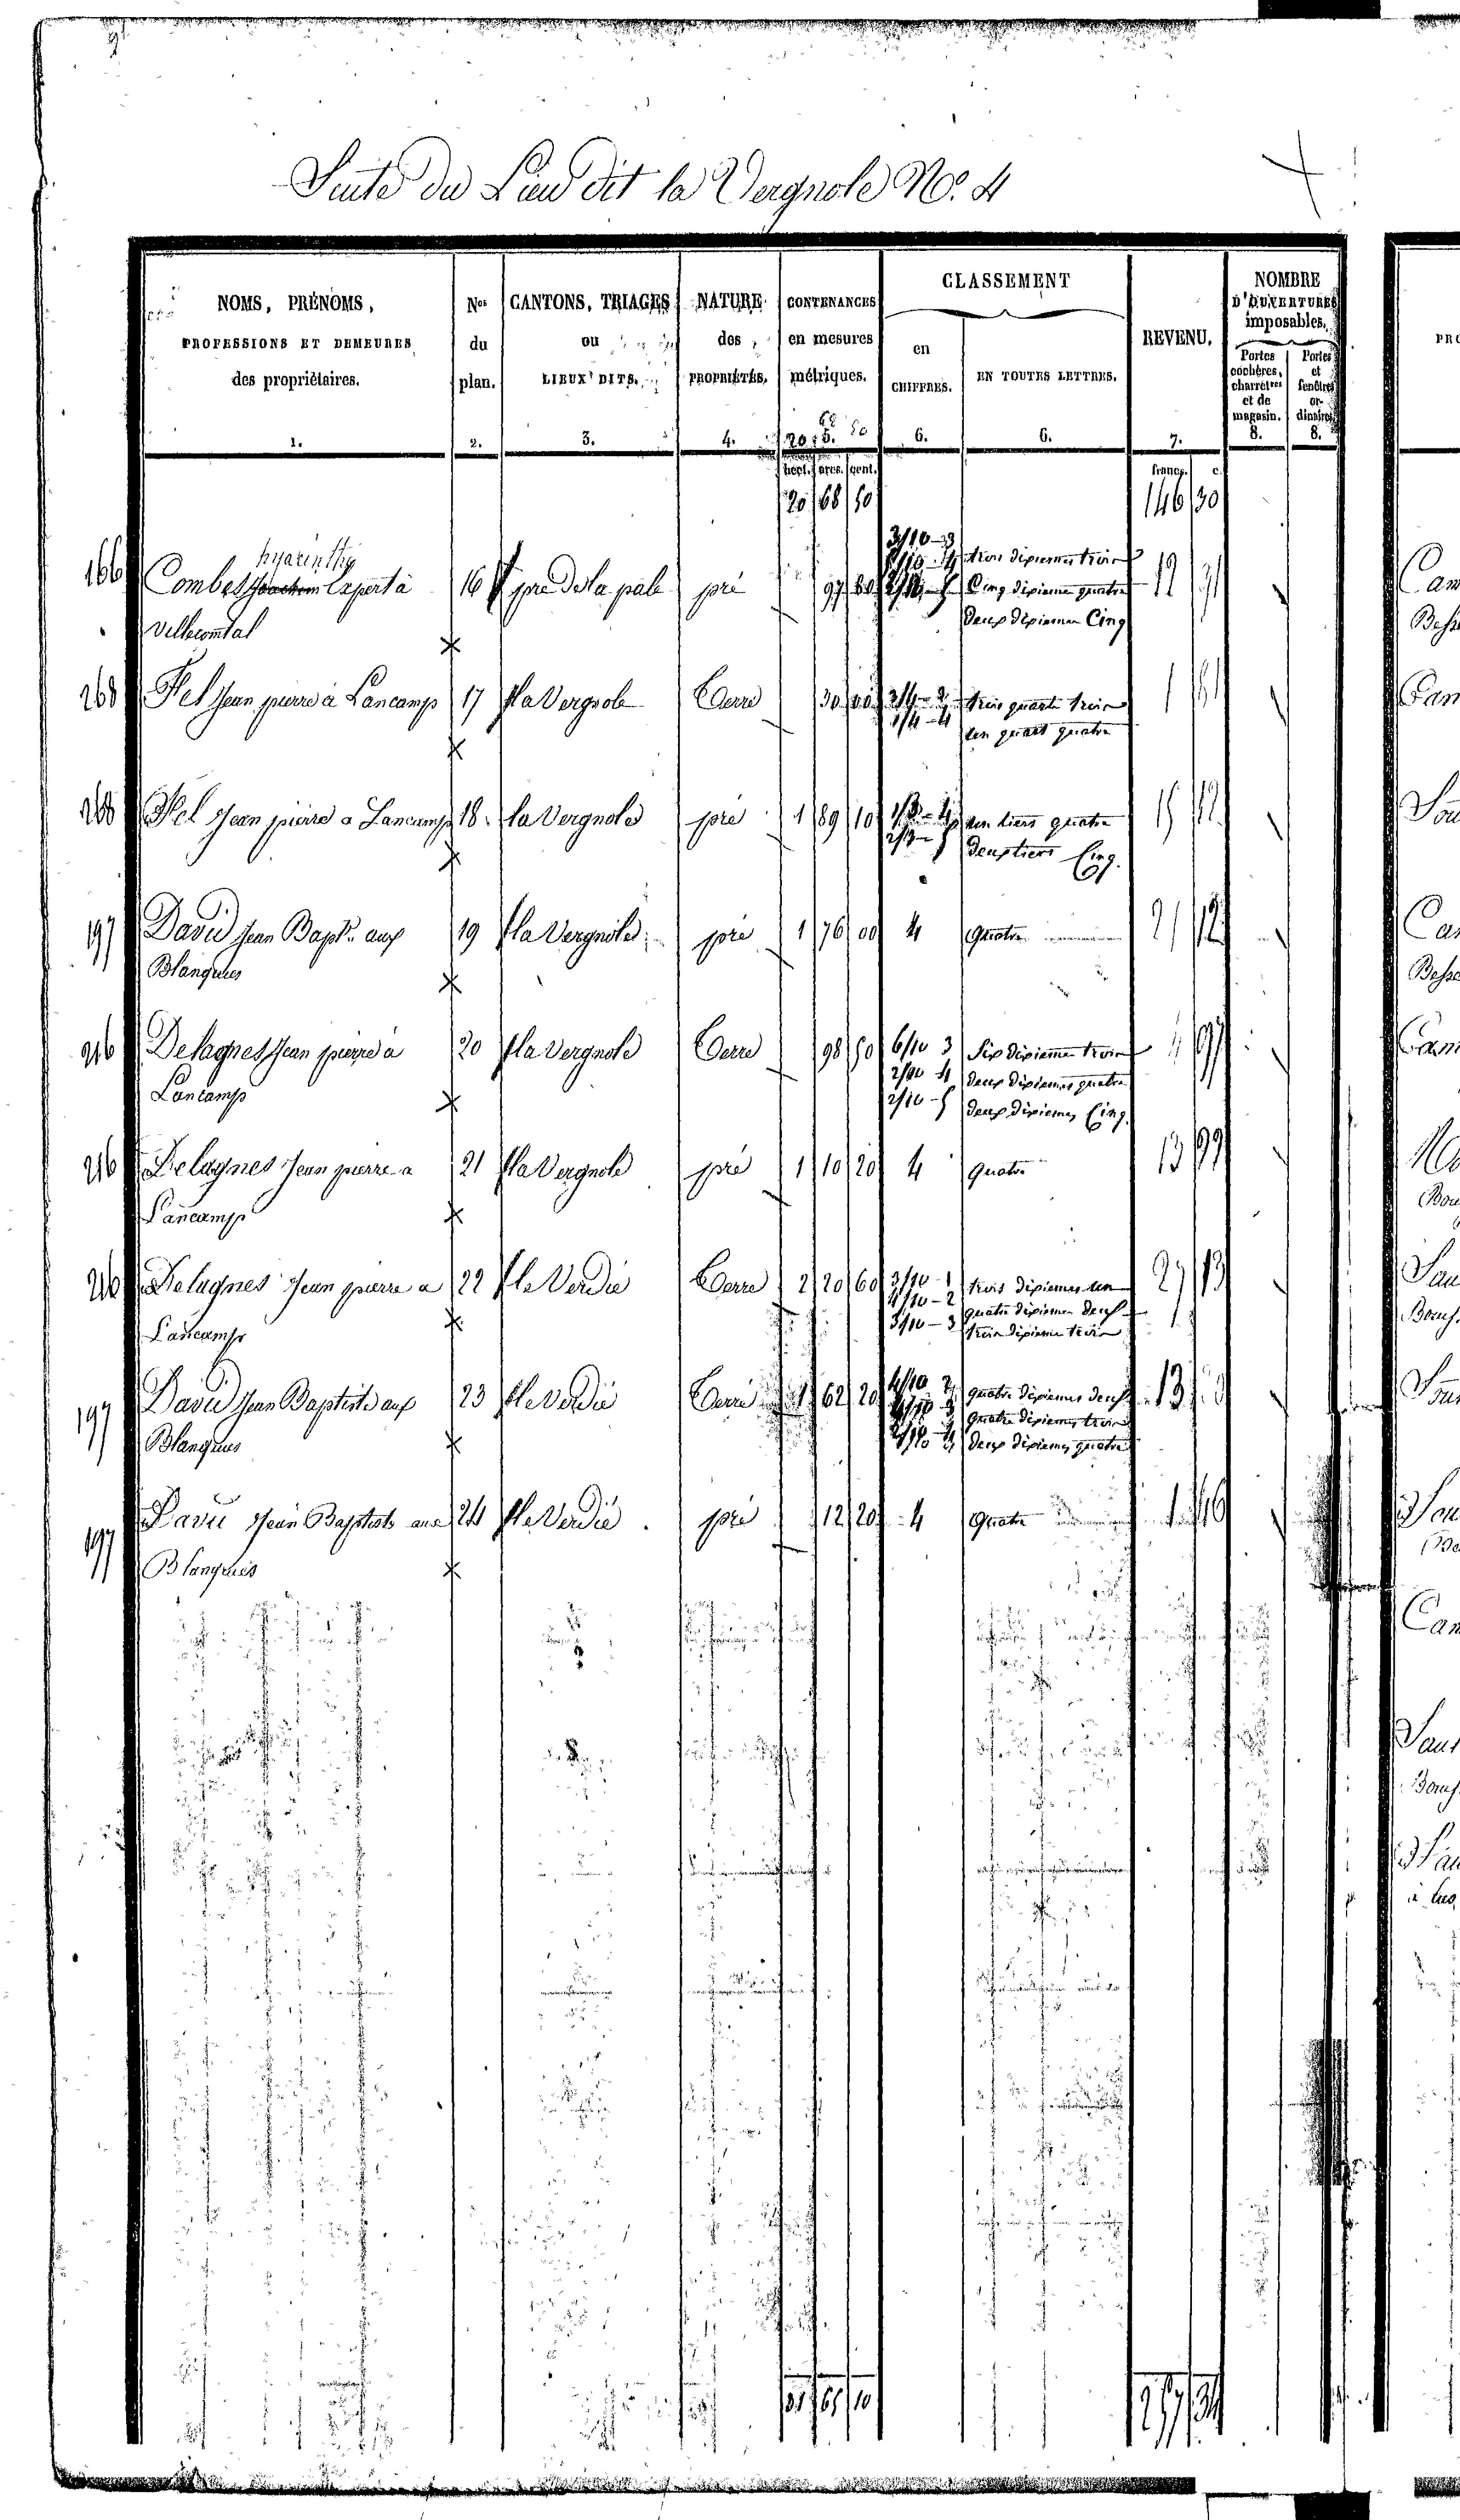 Suite du Lieu dit la Vergnole No. 4
NOMS, PRÉNOMS,
PROFESSIONS ET DEMEURES
des propriétaires.
1.
Nos
du
plan.
2.
CANTONS, TRIAGES
ou
LIEUX DITS.
3.
NATURE
des
PROPRIÉTÉS.
4.
CONTENANCES
en mesures
métriques.
5.
CLASSEMENT
en
CHIFFRES.
6.
EN TOUTES LETTRES.
6.
REVENU.
7.
NOMBRE
D'OUVERTURES
imposables.
Portes
cochères,
charretières
et de
magasin.
8.
Portes
et
fenêtres
or-
dinaires.
8.
hect. ares. cent.
francs. c.
20 68 50 146 30
hyacinthe
166 Combes expert à 16 pré de la pale pré 97 3/10 - 3 trois dixiemes trois 12
Villecomtal Cinq dixieme quatre
deux dixiemes Cinq
168 Fel Jean pierre à Lancamp 17 la Vergnole Terre 30 3/4 - 3 trois quarts trois 1
1/4 - 4 un quart quatre
168 Fel Jean pierre a Lancamp 18 la Vergnole pré 1 89 10 1/3 - 4 un tiers quatre 15 12
2/3 - 5 Deux tiers Cinq.
197 David Jean Bapte aux 19 la Vergnole pré 1 76 00 4 Quatre 21 12
Blanquies
216 Delagnes Jean pierre à 20 la Vergnole Terre 98 50 6/10 3 Six dixieme trois 4 97
Lancamp 2/10 4 deux dixiemes quatre
2/10 - 5 deux dixiemes Cinq
216 Delagnes Jean pierre a 21 la Vergnole pré 1 10 20 4 Quatre 13 99
Lancamp
216 Delagnes Jean pierre a 22 le Verdié Terre 2 20 60 3/10 - 1 trois dixiemes un 27 13
Lancamp 4/10 - 2 quatre dixiemes deux
3/10 - 3 trois dixieme trois
197 David Jean Baptiste aux 23 le Verdié Terre 1 62 20 4/10 2 quatre dixiemes deux 13
Blanquies 4/10 3 quatre dixiemes trois
2/10 4 deux dixiemes quatre
197 David Jean Baptiste aux 24 le Verdié pré 12 20 4 Quatre 1 46
Blanquies